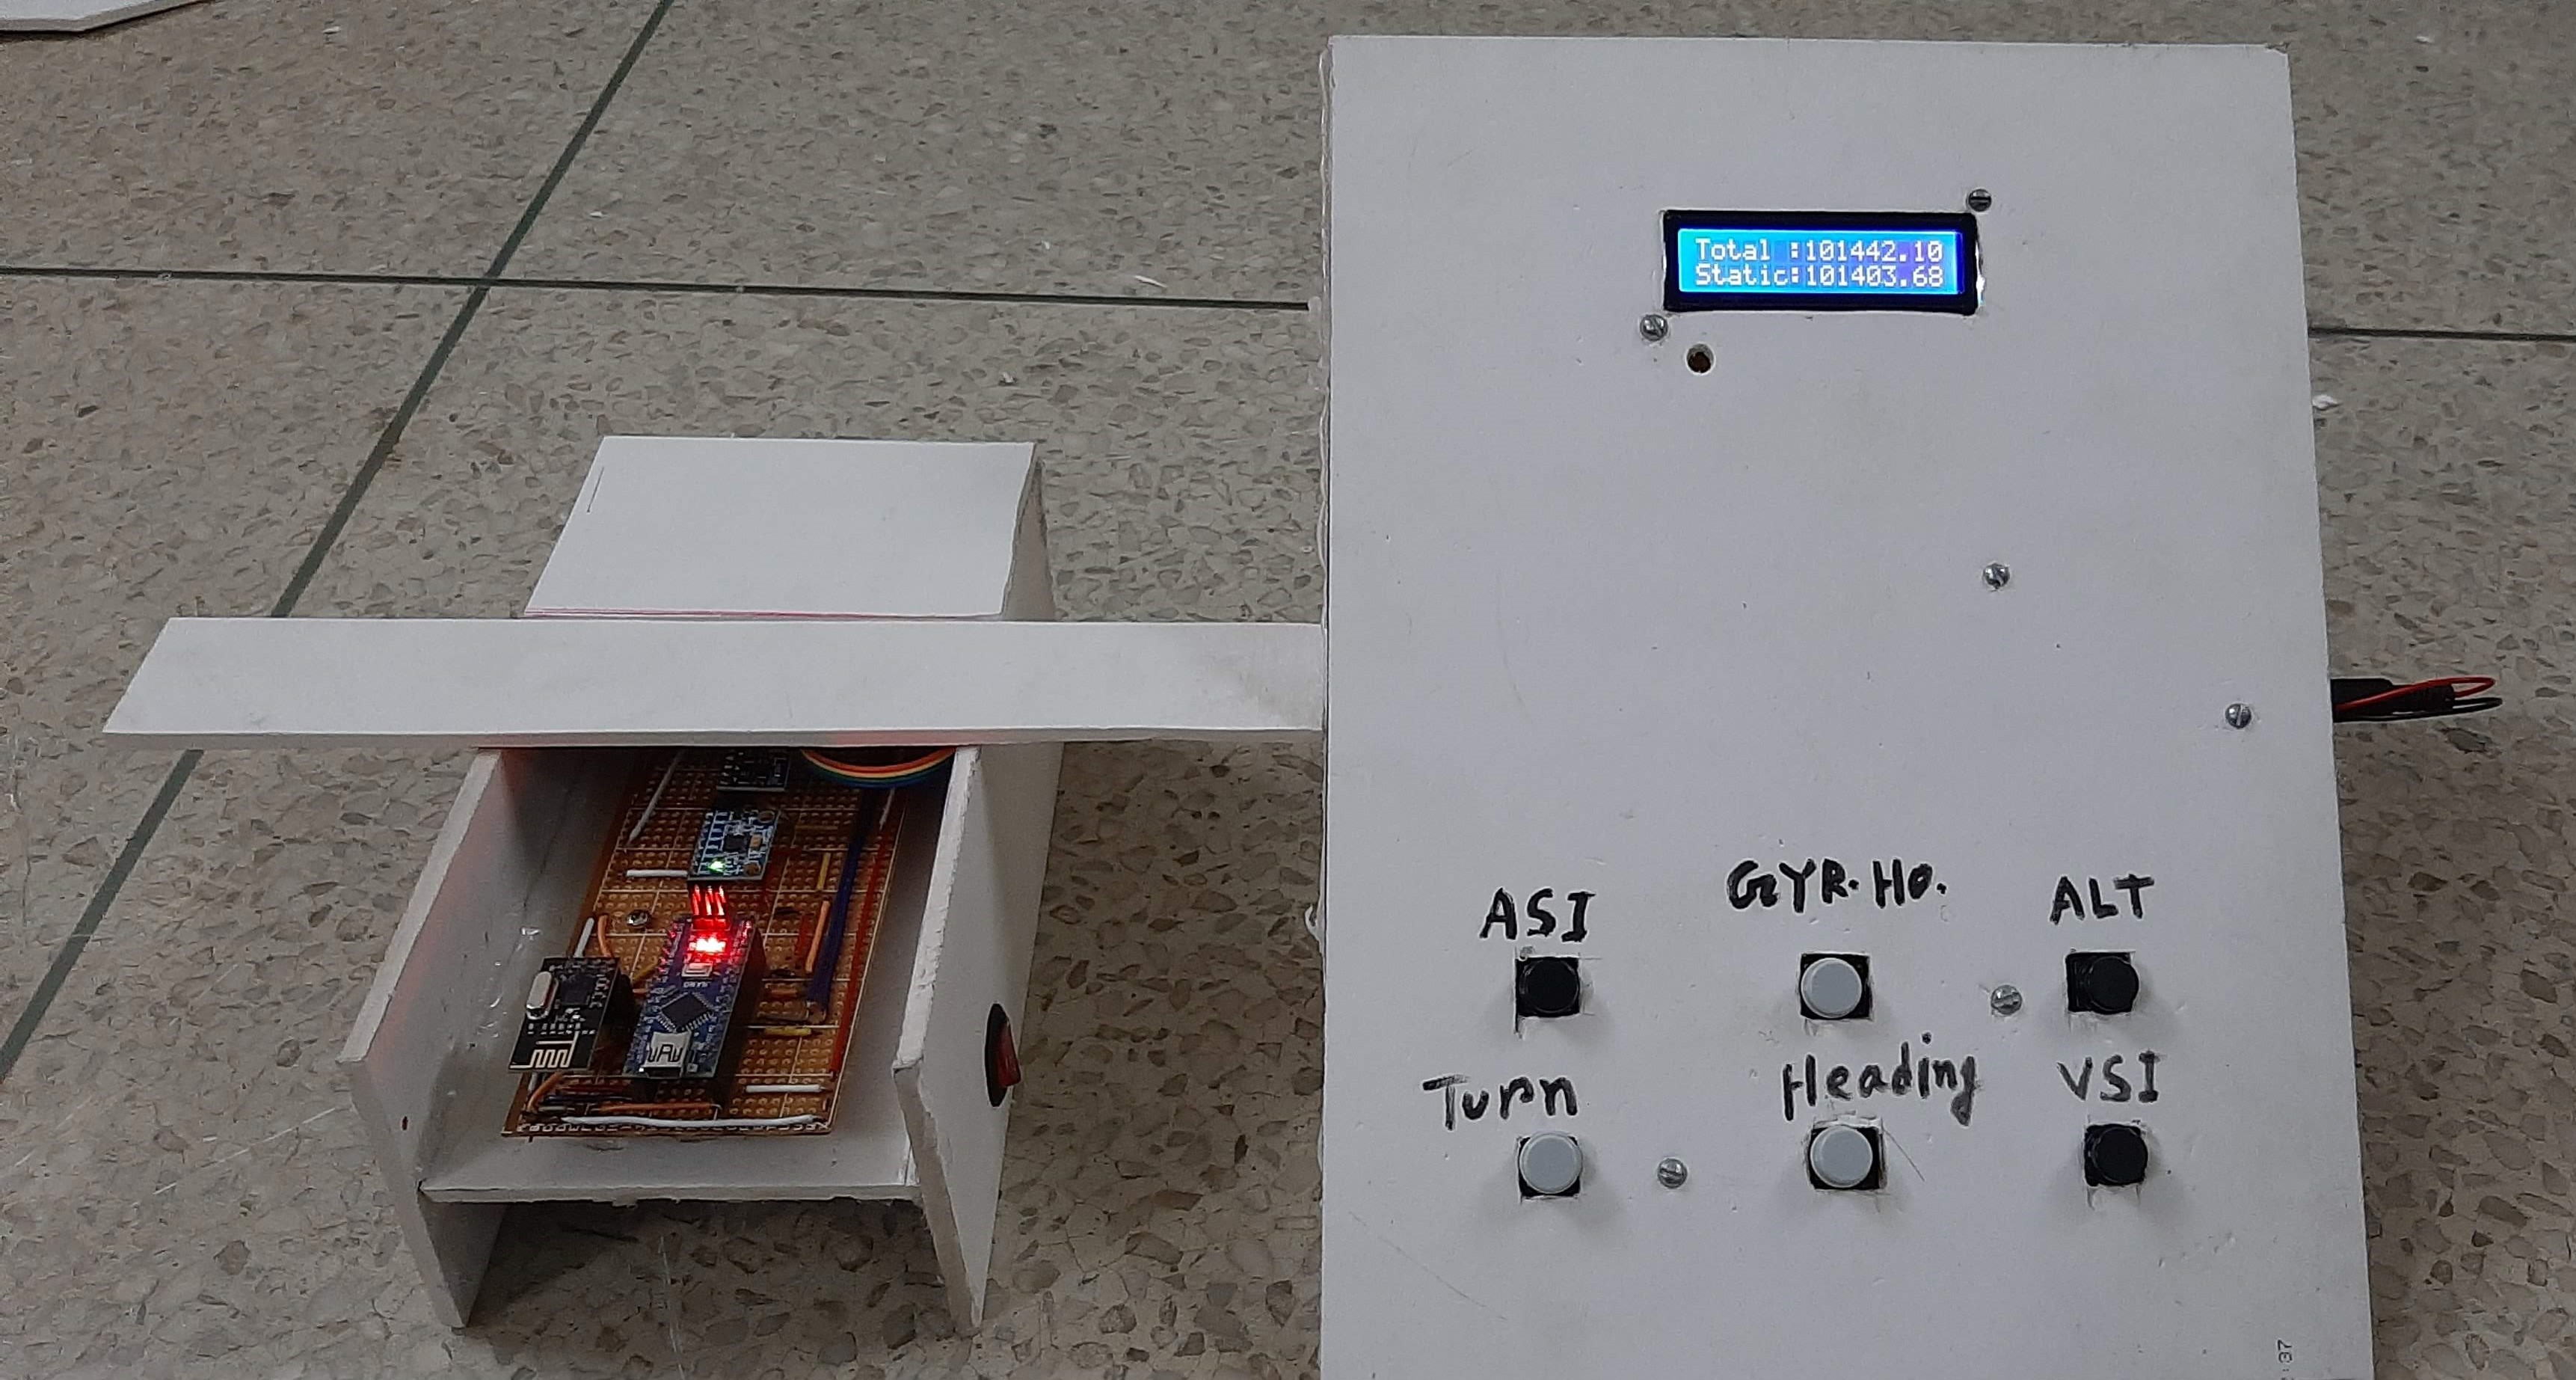 Total :101442.10
Static:101403.68
ASI
GYR. HO.
ALT
Turn
Heading
VSI